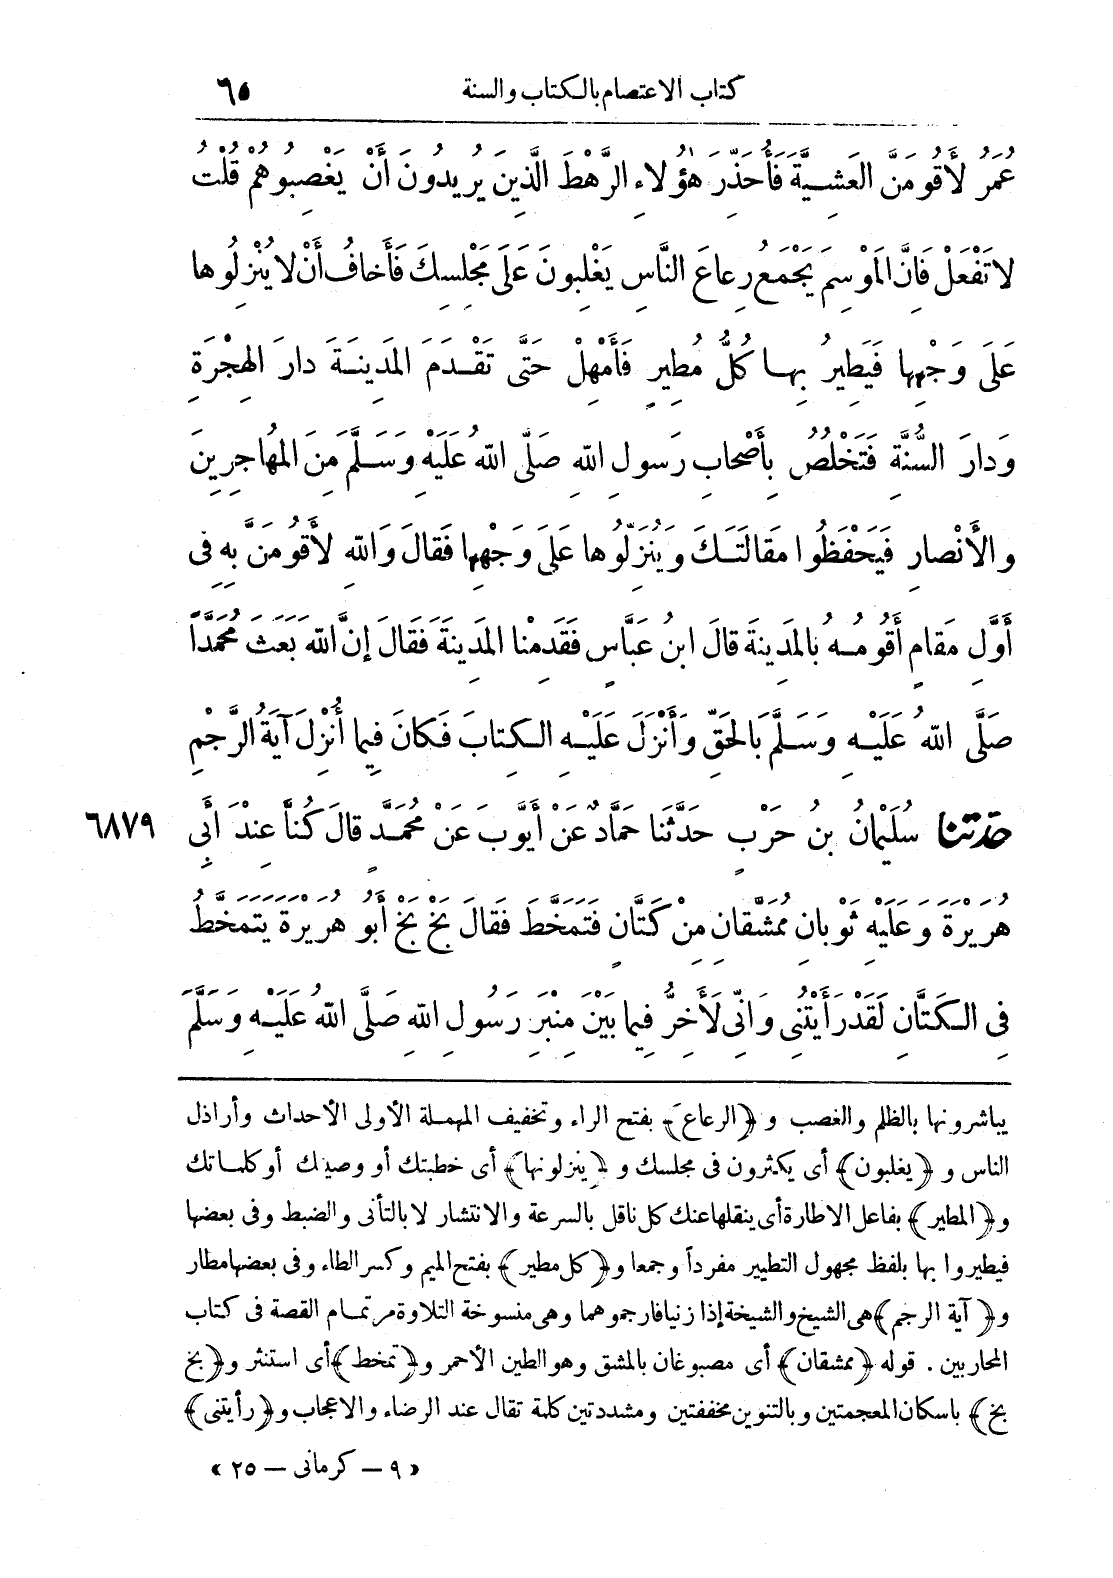 كتاب الاعتصام بالكتاب والسنة ٦٥
عُمَرُ لَأَقُومَنَّ العَشِيَّةَ فَأُحَذِّرَ هَؤُلاءِ الرَّهْطَ الَّذِينَ يُرِيدُونَ أَنْ يَغْصِبُوهُمْ قُلْتُ
لا تَفْعَلْ فَإِنَّ المَوْسِمَ يَجْمَعُ رِعاعَ النَّاسِ يَغْلِبُونَ عَلَى مَجْلِسِكَ فَأَخافُ أَنْ لا يُنْزِلُوها
عَلَى وَجْهِها فَيُطِيرُ بِها كُلُّ مُطِيرٍ فَأَمْهِلْ حَتَّى تَقْدَمَ المَدِينَةَ دارَ الهِجْرَةِ
وَدارَ السُّنَّةِ فَتَخْلُصُ بِأَصْحابِ رَسُولِ اللهِ صَلَّى اللهُ عَلَيْهِ وَسَلَّمَ مِنَ المُهاجِرِينَ
والأَنْصارِ فَيَحْفَظُوا مَقالَتَكَ وَيُنَزِّلُوها عَلَى وَجْهِها فَقالَ وَاللهِ لَأَقُومَنَّ بِهِ فى
أَوَّلِ مَقامٍ أَقُومُهُ بِالمَدِينَةِ قالَ ابنُ عَبَّاسٍ فَقَدِمْنا المَدِينَةَ فَقالَ إِنَّ اللهَ بَعَثَ مُحَمَّدًا
صَلَّى اللهُ عَلَيْهِ وَسَلَّمَ بِالحَقِّ وَأَنْزَلَ عَلَيْهِ الكِتابَ فَكانَ فِيما أُنْزِلَ آيَةُ الرَّجْمِ
٦٨٧٩ حَدَّثَنا سُلَيْمانُ بنُ حَرْبٍ حَدَّثَنا حَمَّادٌ عَنْ أَيُّوبَ عَنْ مُحَمَّدٍ قالَ كُنَّا عِنْدَ أَبِى
هُرَيْرَةَ وَعَلَيْهِ ثَوْبانِ مُمَشَّقانِ مِنْ كَتَّانٍ فَتَمَخَّطَ فَقالَ بَخْ بَخْ أَبُو هُرَيْرَةَ يَتَمَخَّطُ
فِى الكَتَّانِ لَقَدْ رَأَيْتُنِى وَإِنِّى لَأَخِرُّ فِيما بَيْنَ مِنْبَرِ رَسُولِ اللهِ صَلَّى اللهُ عَلَيْهِ وَسَلَّمَ
يباشرونها بالظلم والغصب و ﴿الرعاع﴾ بفتح الراء وتخفيف المهملة الأولى الأحداث وأراذل
الناس و ﴿يغلبون﴾ أى يكثرون فى مجلسك و ﴿ينزلونها﴾ أى خطبتك أو وصيتك أو كلماتك
و﴿المطير﴾ بفاعل الاطارة أى ينقلها عنك كل ناقل بالسرعة والانتشار لا بالتأنى والضبط وفى بعضها
فيطيروا بها بلفظ مجهول التطيير مفرداً وجمعا و﴿كل مطير﴾ بفتح الميم وكسر الطاء وفى بعضها مطار
و﴿آية الرجم﴾ هى الشيخ والشيخة إذا زنيا فارجموهما وهى منسوخة التلاوة مر تمام القصة فى كتاب
المحاربين . قوله ﴿ممشقان﴾ أى مصبوغان بالمشق وهو الطين الأحمر و﴿تمخط﴾ أى استنثر و﴿بخ
بخ﴾ باسكان المعجمتين وبالتنوين مخففتين ومشددتين كلمة تقال عند الرضاء والاعجاب و﴿رأيتنى﴾
« ٩ – كرمانى – ٢٥ »